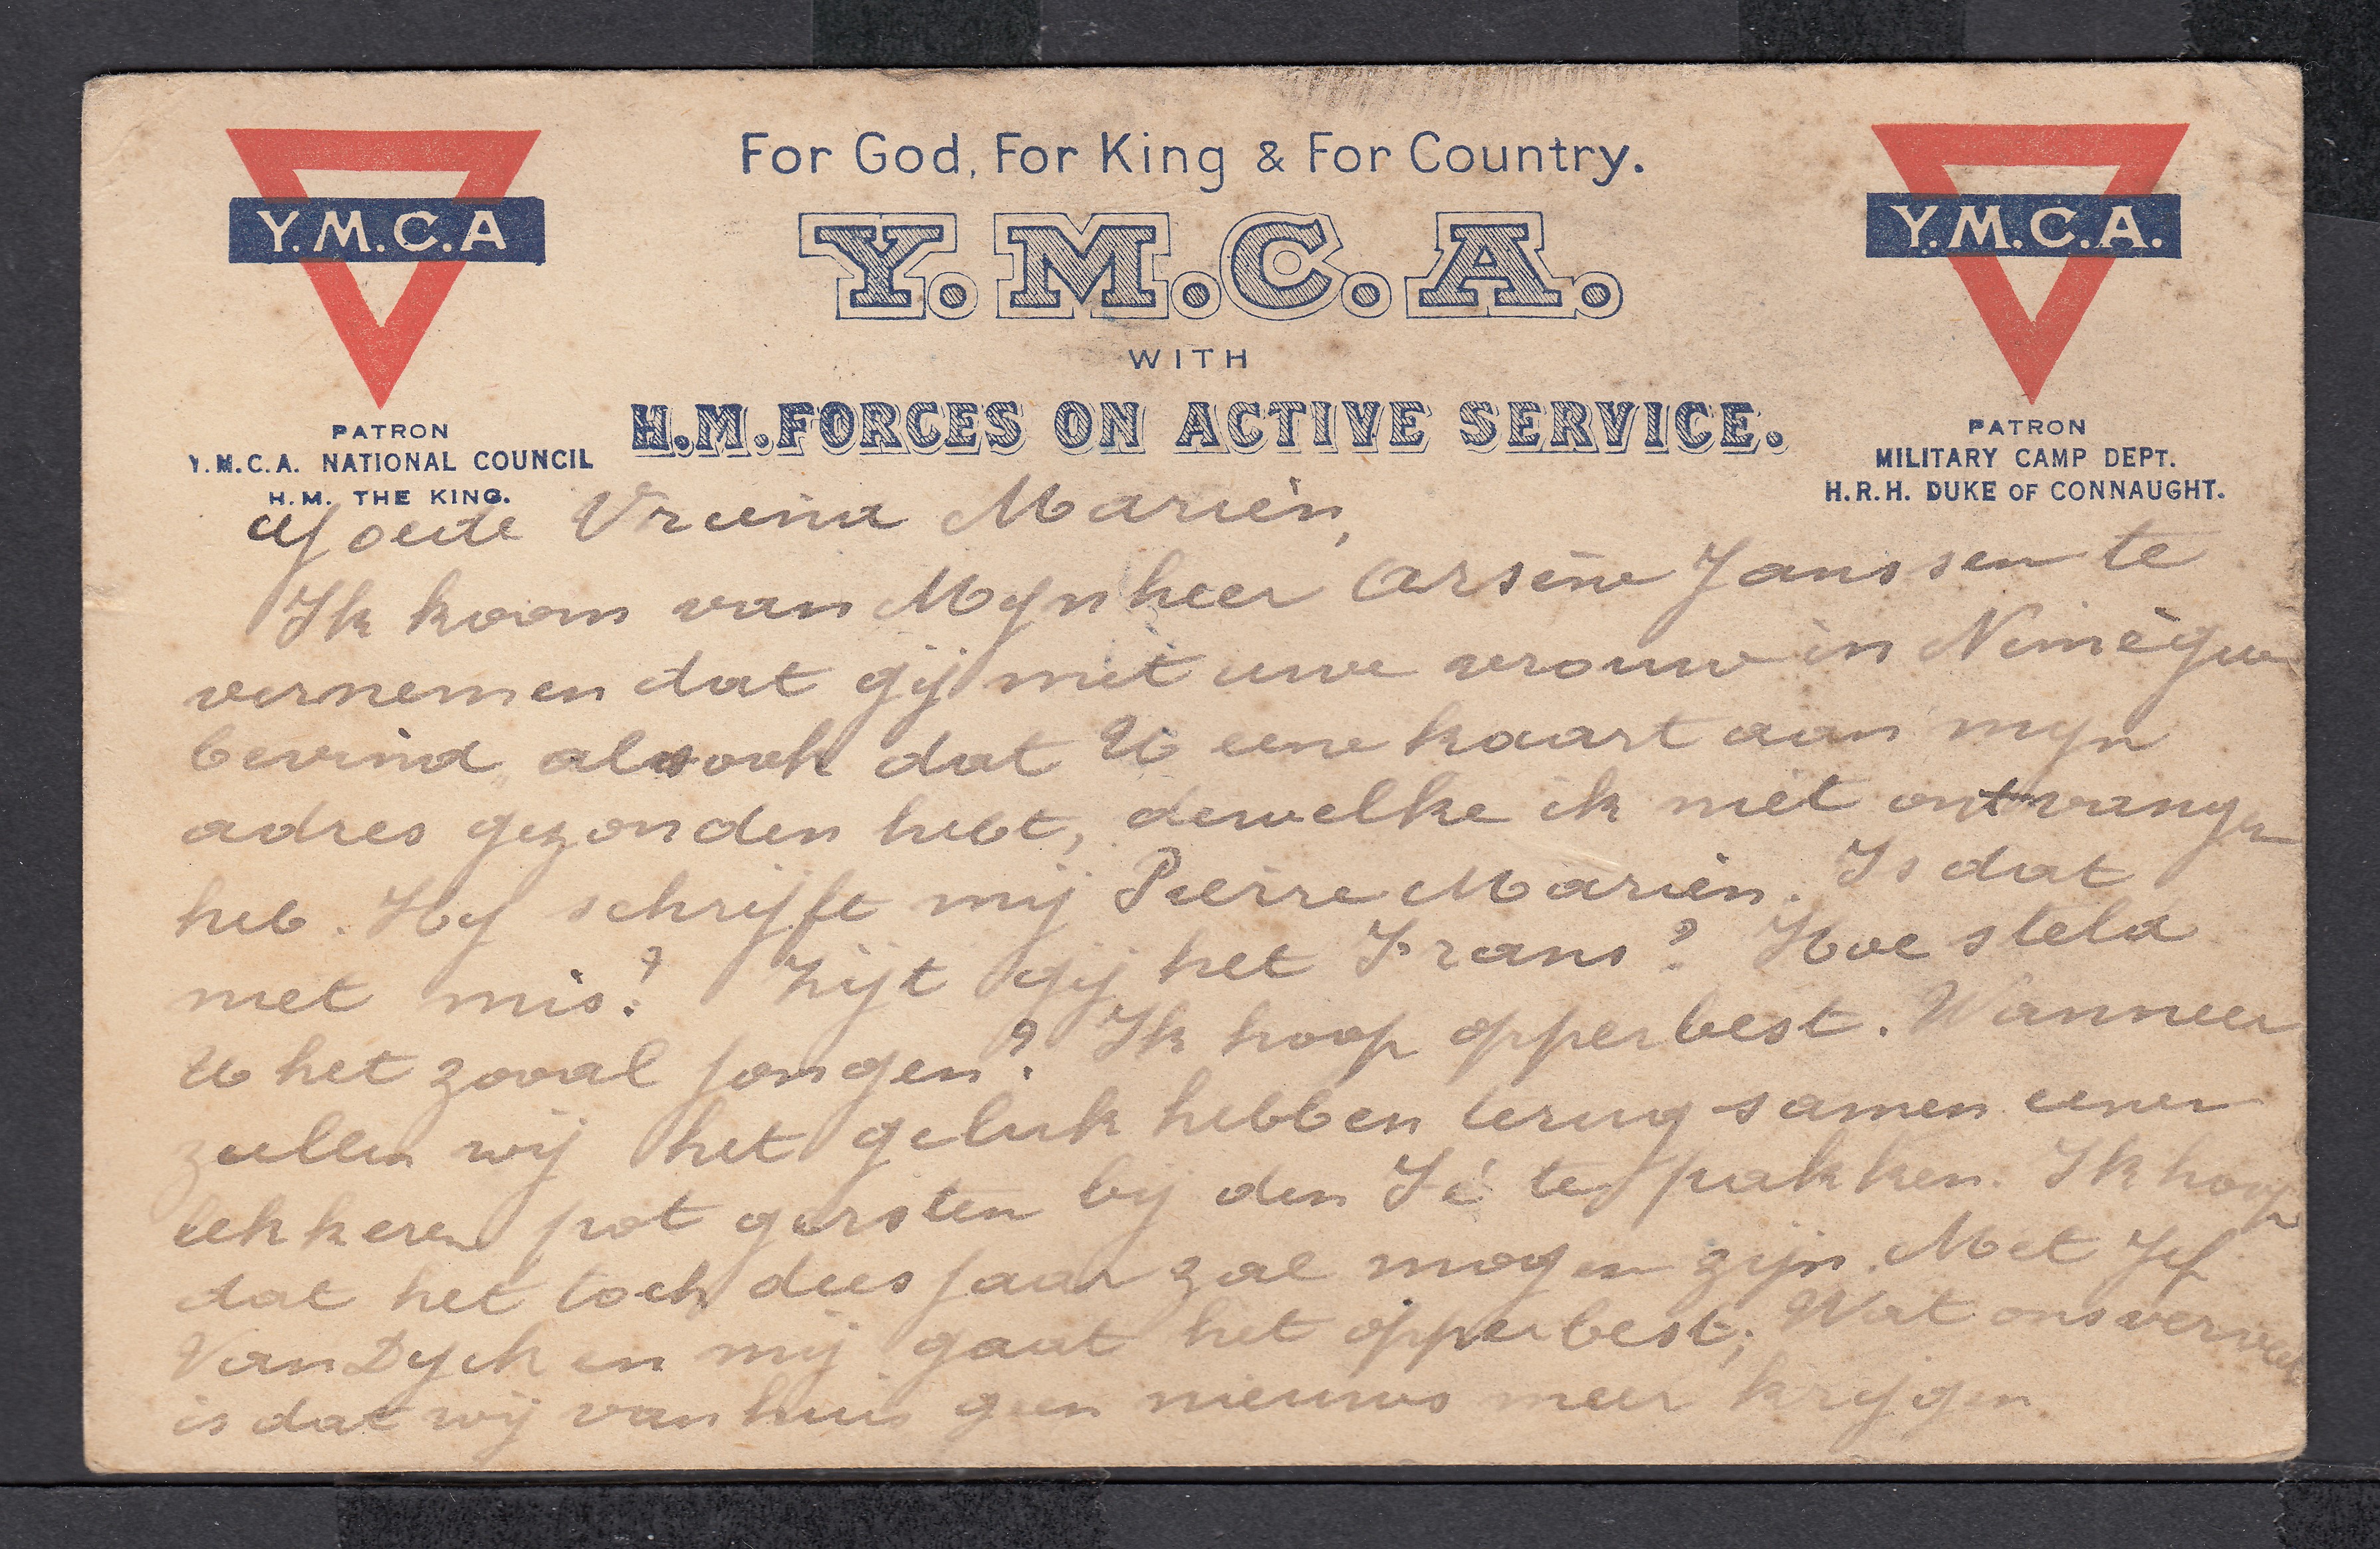 For God, For King & For Country.
Y.M.C.A
Y.M.C.A.
Y.M.C.A.
WITH
H.M. FORCES ON ACTIVE SERVICE.
PATRON
Y.M.C.A. NATIONAL COUNCIL
H.M. THE KING.
PATRON
MILITARY CAMP DEPT.
H.R.H. DUKE OF CONNAUGHT.
Goede Vriend Mariën,
Ik koom van Mynheer Arsène Janssen te
vernemen dat gij met uwe vrouw in Nimègue
bevind alsook dat U eene kaart aan myn
adres gezonden hebt, dewelke ik niet ontvangen
heb. Hy schrijft mij Pierre Mariën. Is dat
niet mis? Zijt gij het Frans? Hoe steld
U het zooal jongen? Ik hoop opperbest. Wanneer
zullen wij het geluk hebben terug samen eenen
lekkeren pot gersten bij den Jé te pakken. Ik hoop
dat het toch dees jaar zal mogen zijn. Met Jef
Van Dyck en mij gaat het opperbest; Wat ons
is dat wij van huis geen nieuws meer krijgen